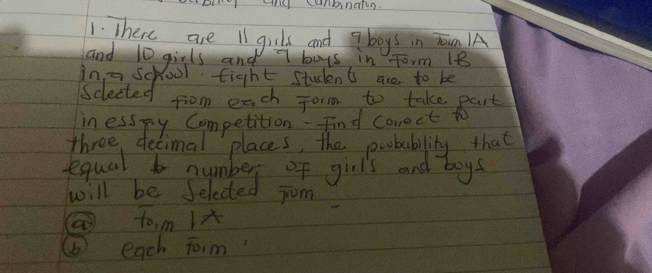 and Combination.
1. There are 11 girls and 9 boys in Form 1A
and 10 girls and 9 boys in Form 1B
in a school. Eight Students are to be
Selected from each Form to take part
in essay Competition - Find Correct to
three decimal places, the probability that
equal number of girls and boys
will be Selected from
(a) Form 1A
(b) each Form.